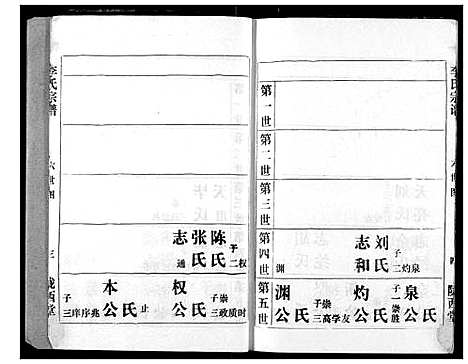 李氏宗谱
六世图
四
陇西堂
第一世
第二世
第三世
第四世
刘氏
子二
灼泉
志和
渊
第五世
泉公
氏
子二
崇胜
灼公
氏
渊公
氏
子三
崇高
学友
李氏宗谱
六世图
三
陇西堂
陈氏
张氏
子二
权
志
通
权公
氏
子三
崇政质时
本公
氏
止
子三
序序兆